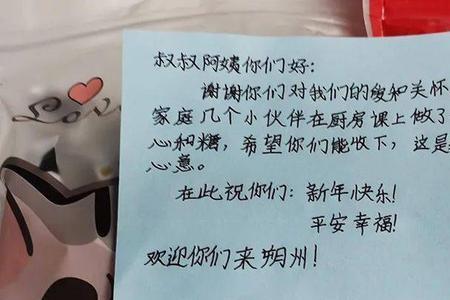 Love
叔叔阿姨你们好:
谢谢你们对我们的爱和关怀
家庭几个小伙伴在厨房课上做了
心和糖,希望你们能收下,这是
心意。
在此祝你们:新年快乐!
平安幸福!
欢迎你们来朔州!